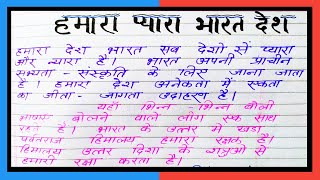 हमारा प्यारा भारत देश
हमारा देश भारत सब देशों से प्यारा
और न्यारा है। भारत अपनी प्राचीन
सभ्यता - संस्कृति के लिए जाना जाता
है। हमारा देश अनेकता में एकता
का जीता - जागता उदाहरण है।
यहाँ भिन्न - भिन्न बोली
भाषाएँ बोलने वाले लोग एक साथ
रहते हैं। भारत के उत्तर में खड़ा
पर्वतराज हिमालय हमारा रक्षक है।
हिमालय उत्तर दिशा के शत्रुओं से
हमारी रक्षा करता है।